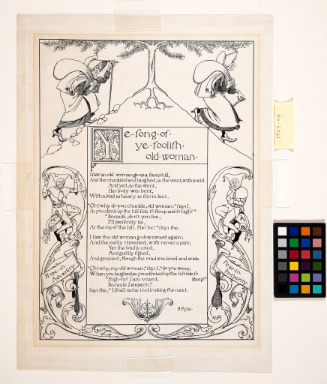 Ye song of
ye foolish
old woman.
I saw an old woman go up a steep hill,
And she chuckled and laughed, as she went, with a will.
And yet, as she went,
Her body was bent,
With a load as heavy as sins in lent.
"Oh! why do you chuckle, old woman," says I,
"As you climb up the hill-side so steep and so high?"
"Because, don't you see,
I'll presently be,
At the top of the hill. He! he!" says she.
I saw the old woman go downward again;
And she easily travelled, with never a pain;
Yet she loudly cried,
And gustily sighed,
And groaned, though the road was level and wide.
"Oh! why, my old woman," says I, "do you weep,
When you laughed, as you climbed up the hill-side so
steep?"
"High-ho! I am vexed,
Because I expects,"
Says she, "I shall ache in climbing the next.
H. Pyle.